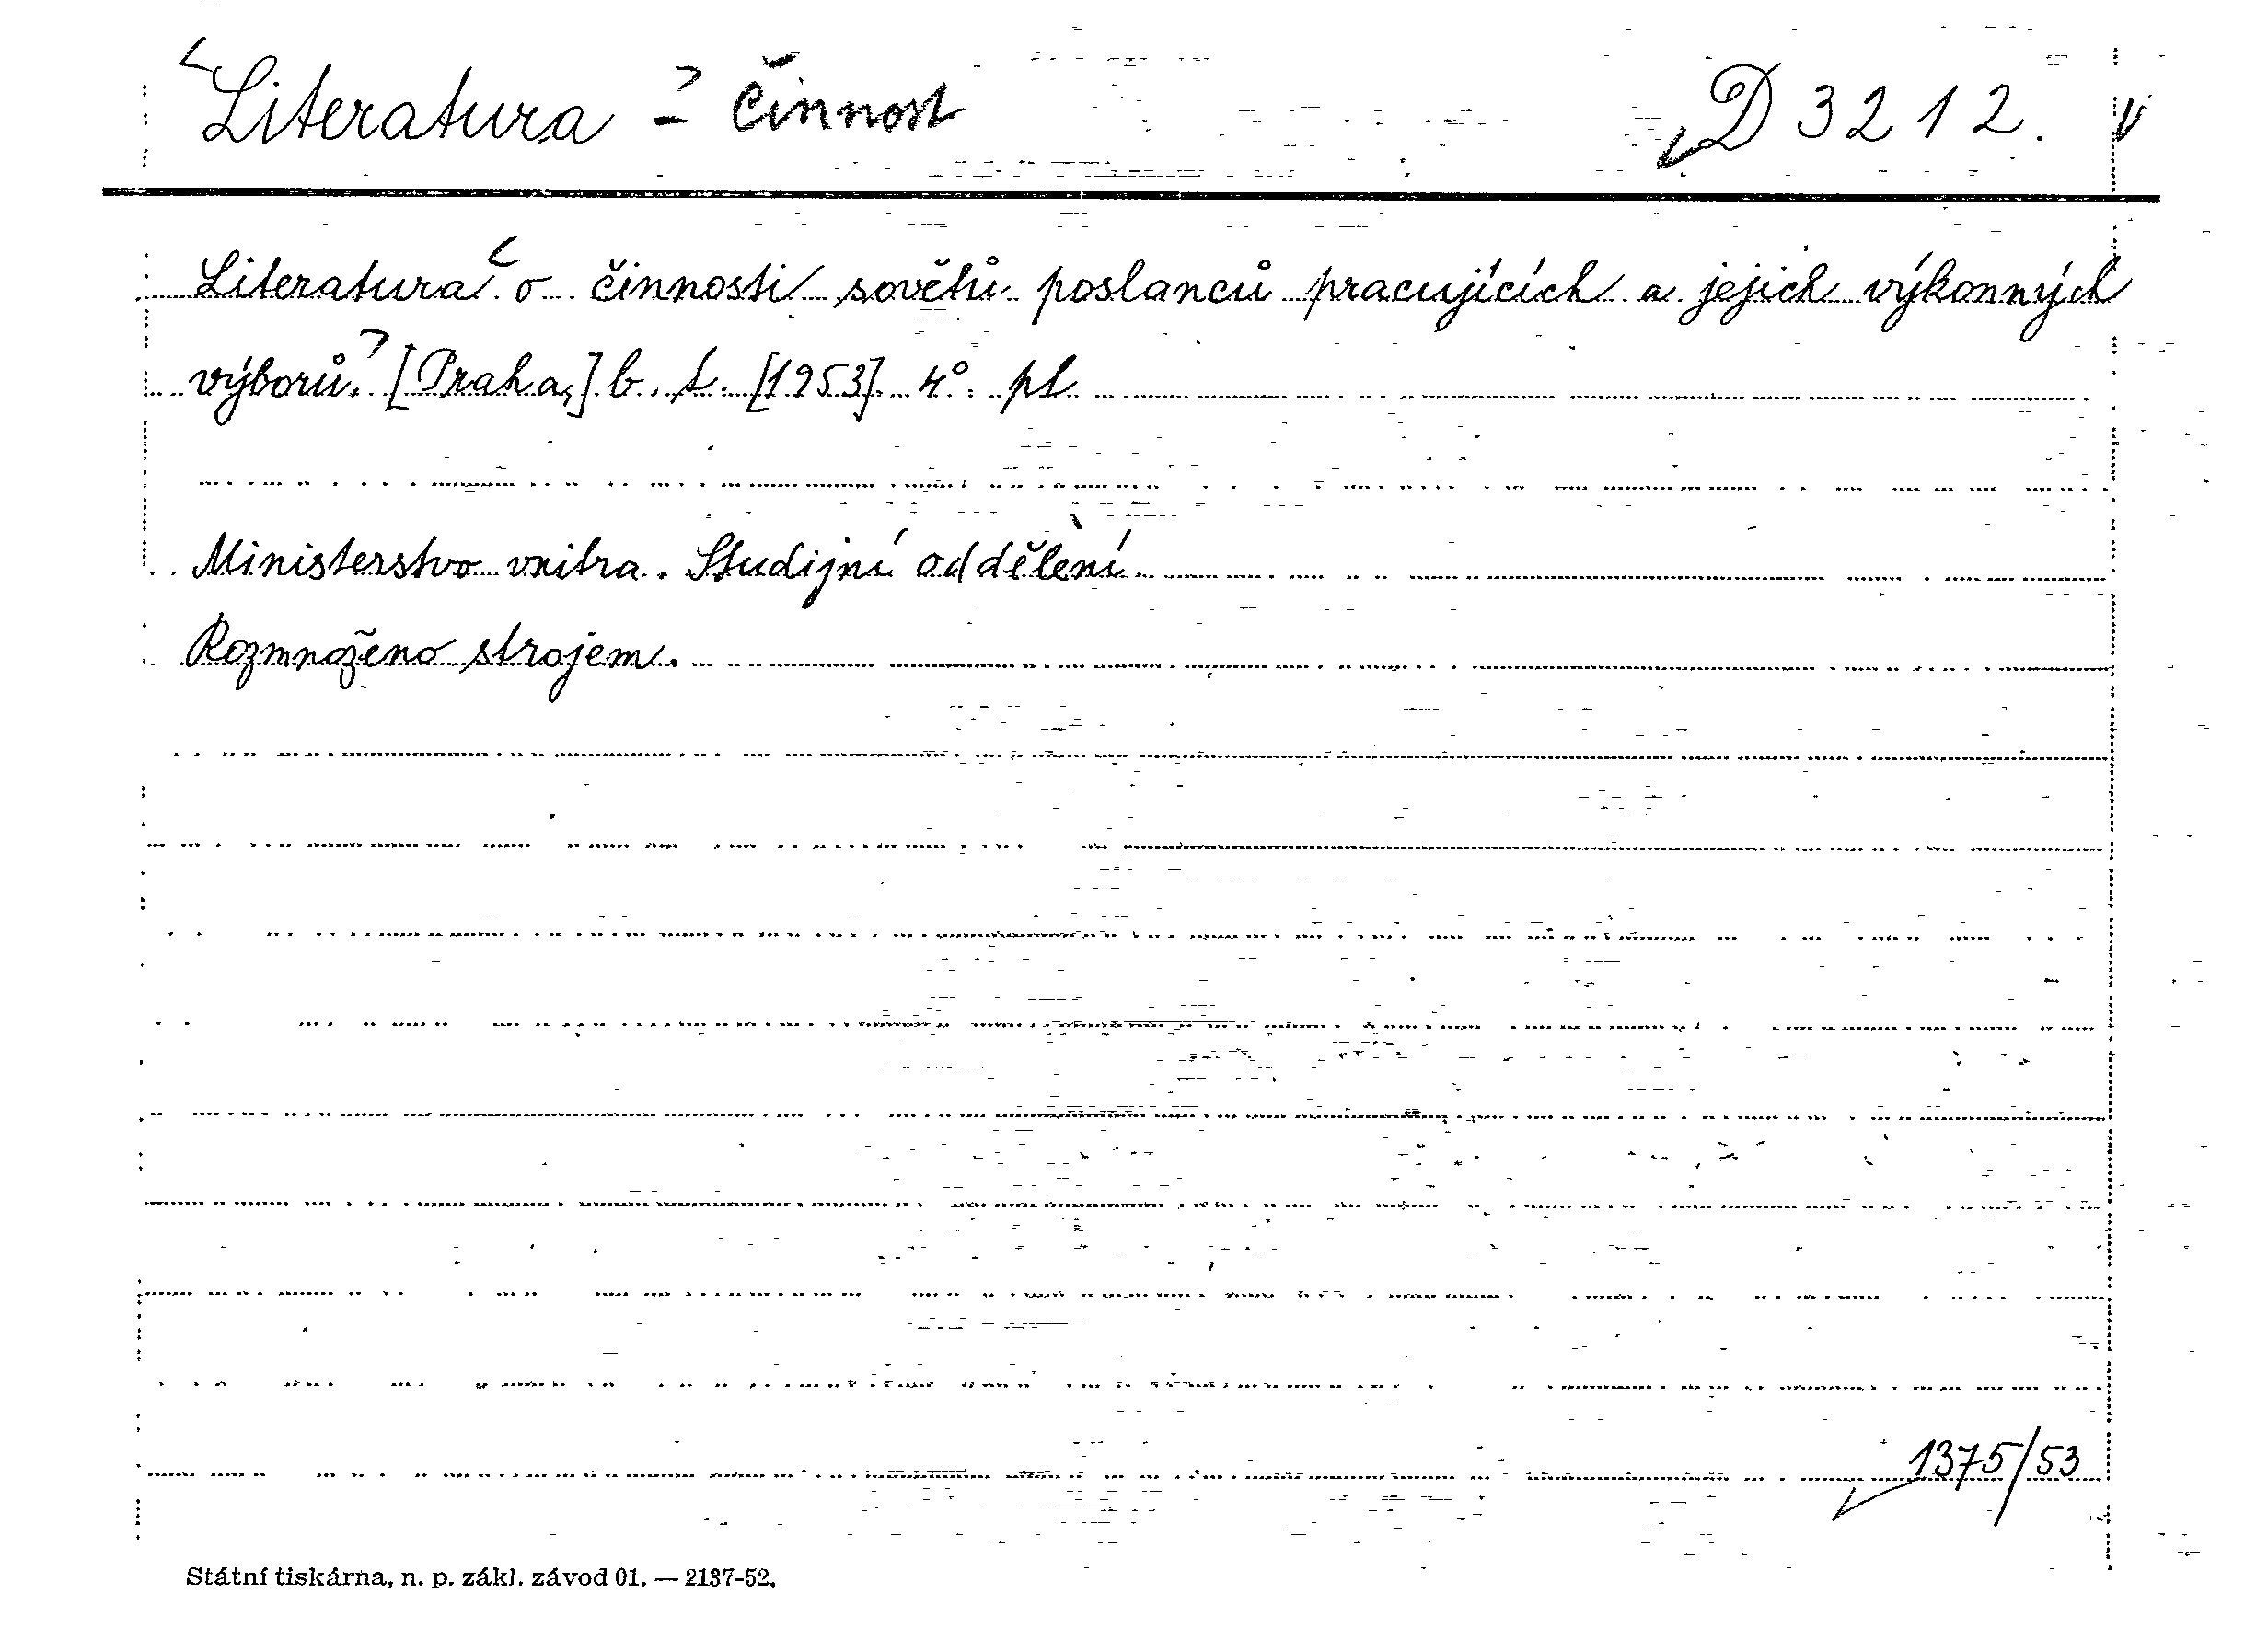 Literatura - činnost D 3212.
Literatura o činnosti sovětů poslanců pracujících a jejich výkonných
výborů. [Praha,] b. t. [1953]. 4°. pl.
Ministerstvo vnitra. Studijní oddělení.
Rozmnoženo strojem.
1375/53
Státní tiskárna, n. p. zákl. závod 01. — 2137-52.